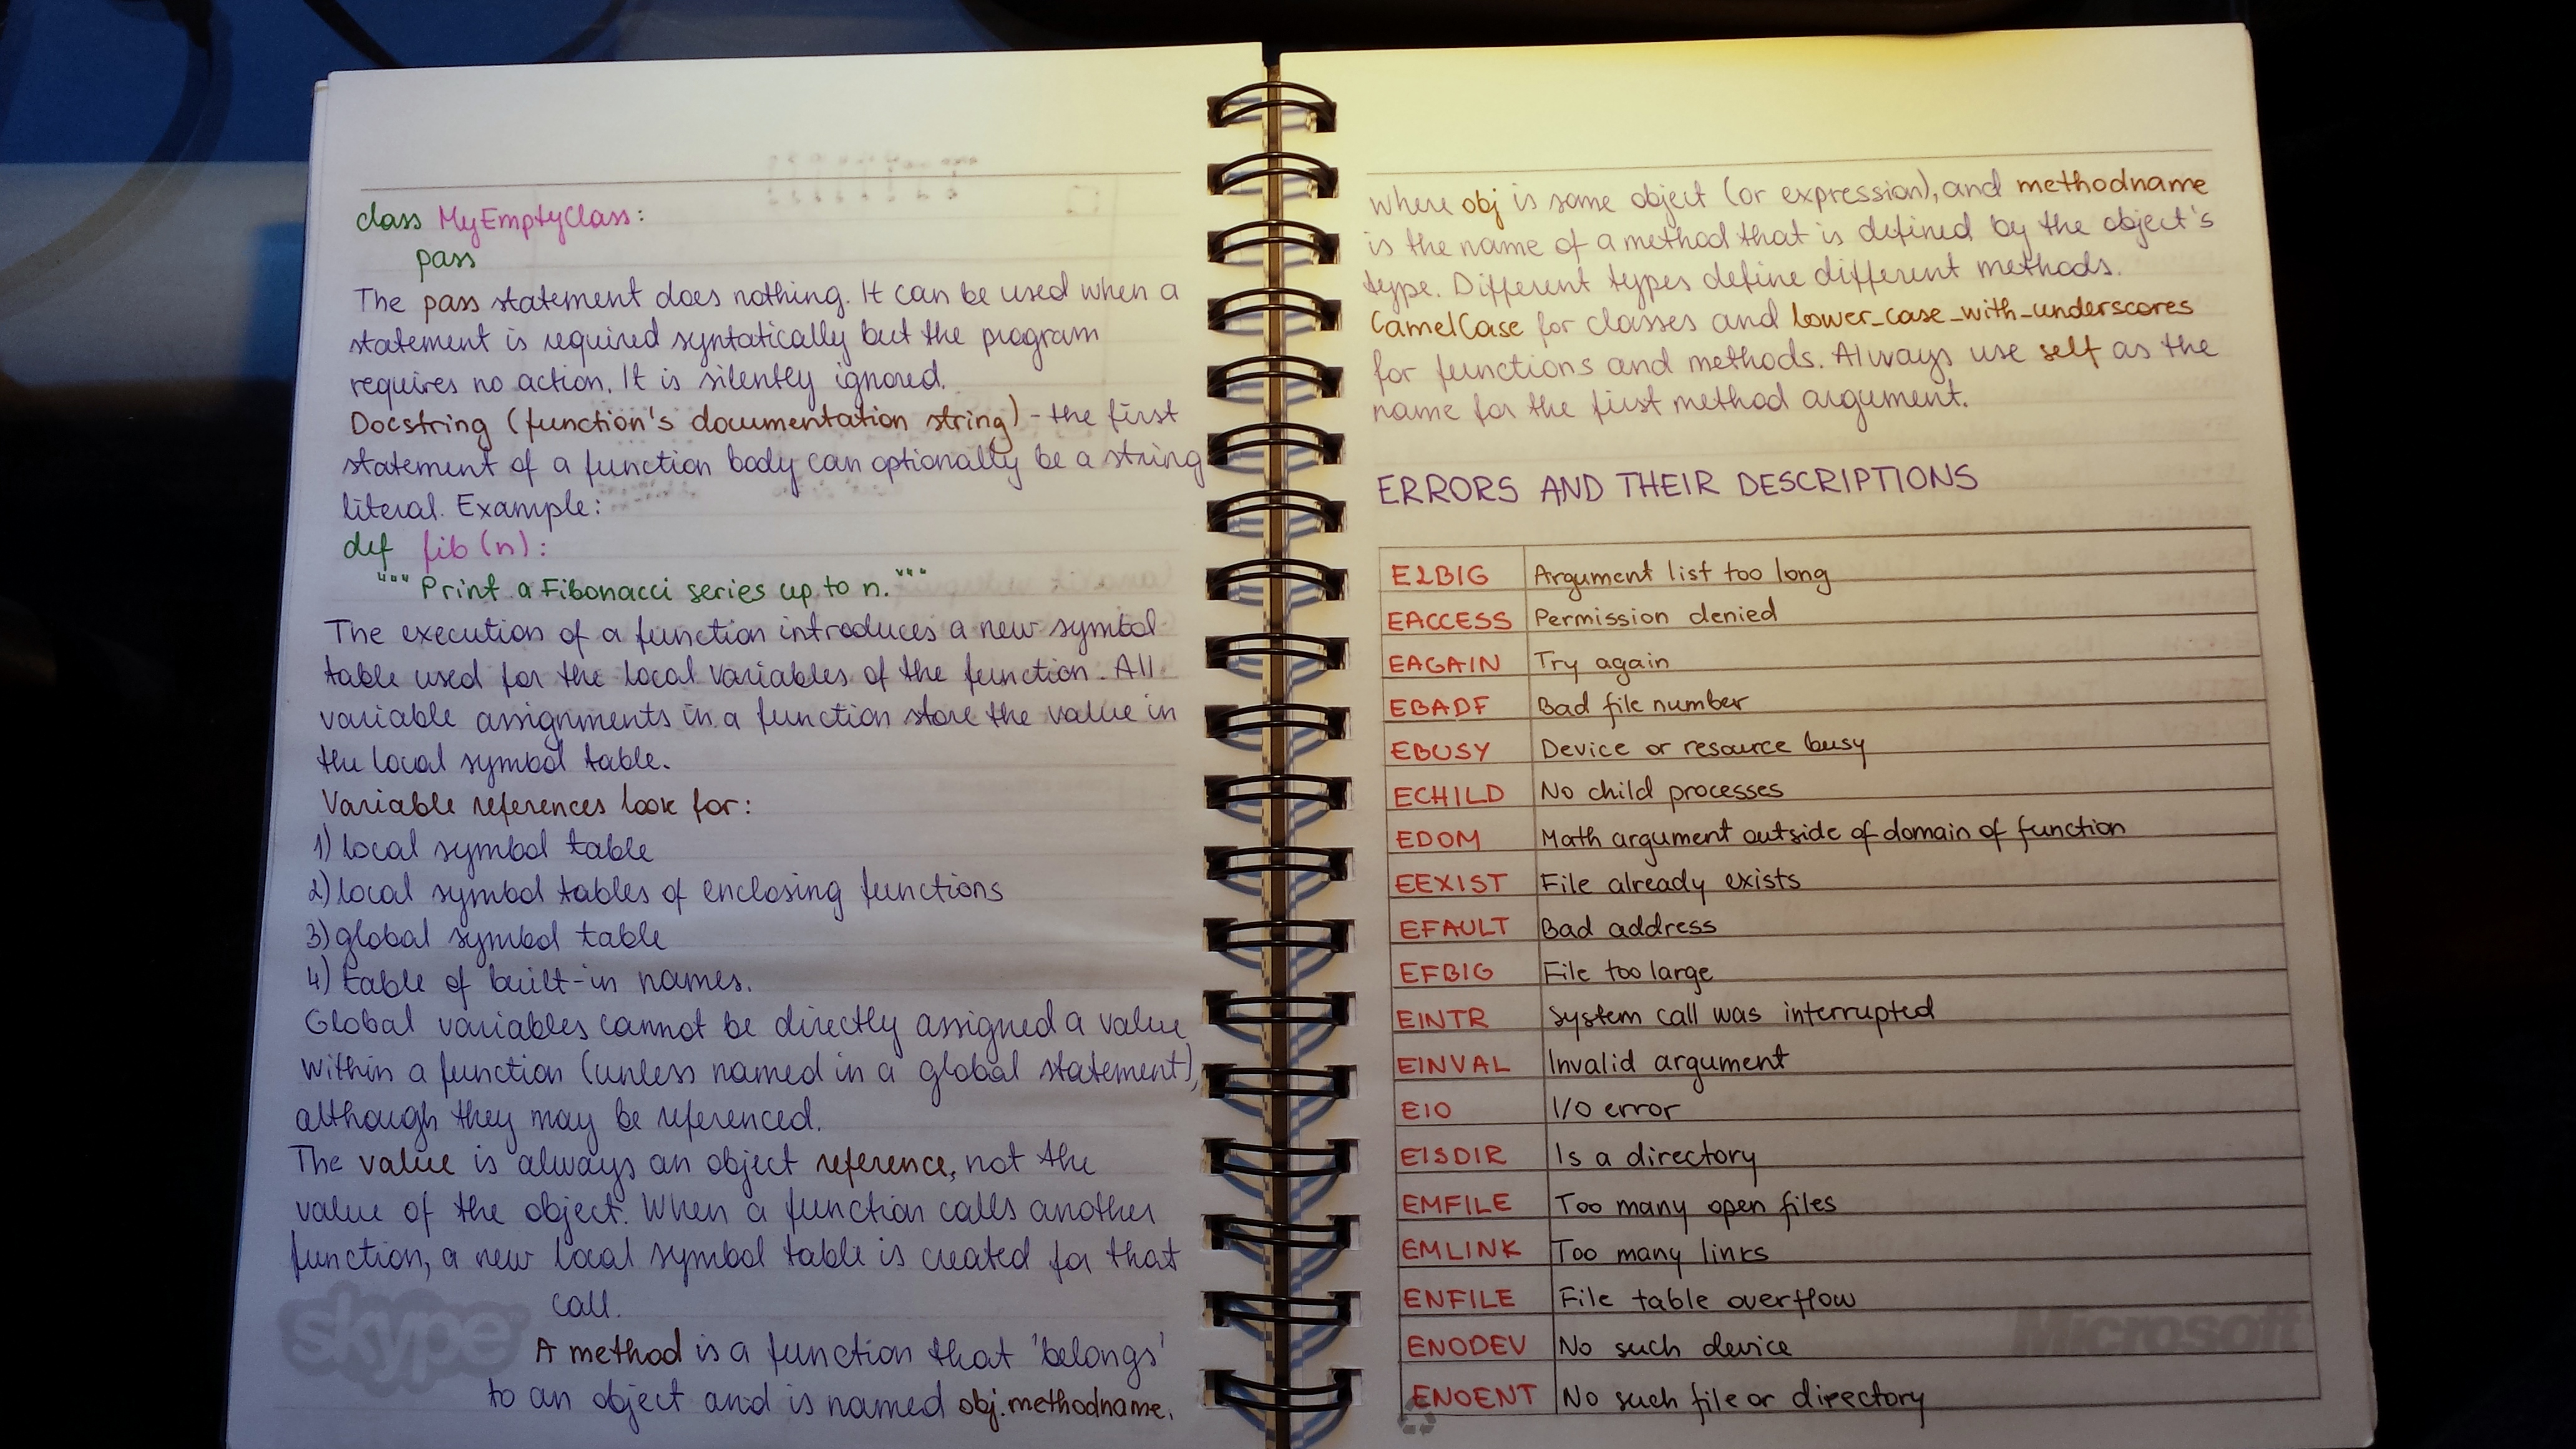 class MyEmptyClass:
pass
The pass statement does nothing. It can be used when a
statement is required syntatically but the program
requires no action. It is silently ignored.
Docstring (function's documentation string) - the first
statement of a function body can optionally be a string
literal. Example:
def fib(n):
""" Print a Fibonacci series up to n."""
The execution of a function introduces a new symbol
table used for the local variables of the function. All
variable assignments in a function store the value in
the local symbol table.
Variable references look for:
1) local symbol table
2) local symbol tables of enclosing functions
3) global symbol table
4) table of built-in names.
Global variables cannot be directly assigned a value
within a function (unless named in a global statement),
although they may be referenced.
The value is always an object reference, not the
value of the object. When a function calls another
function, a new local symbol table is created for that
call.
skype
A method is a function that 'belongs'
to an object and is named obj.methodname,
where obj is some object (or expression), and methodname
is the name of a method that is defined by the object's
type. Different types define different methods.
CamelCase for classes and lower_case_with_underscores
for functions and methods. Always use self as the
name for the first method argument.
ERRORS AND THEIR DESCRIPTIONS
E2BIG Argument list too long
EACCESS Permission denied
EAGAIN Try again
EBADF Bad file number
EBUSY Device or resource busy
ECHILD No child processes
EDOM Math argument outside of domain of function
EEXIST File already exists
EFAULT Bad address
EFBIG File too large
EINTR System call was interrupted
EINVAL Invalid argument
EIO I/O error
EISDIR Is a directory
EMFILE Too many open files
EMLINK Too many links
ENFILE File table overflow
Microsoft
ENODEV No such device
ENOENT No such file or directory